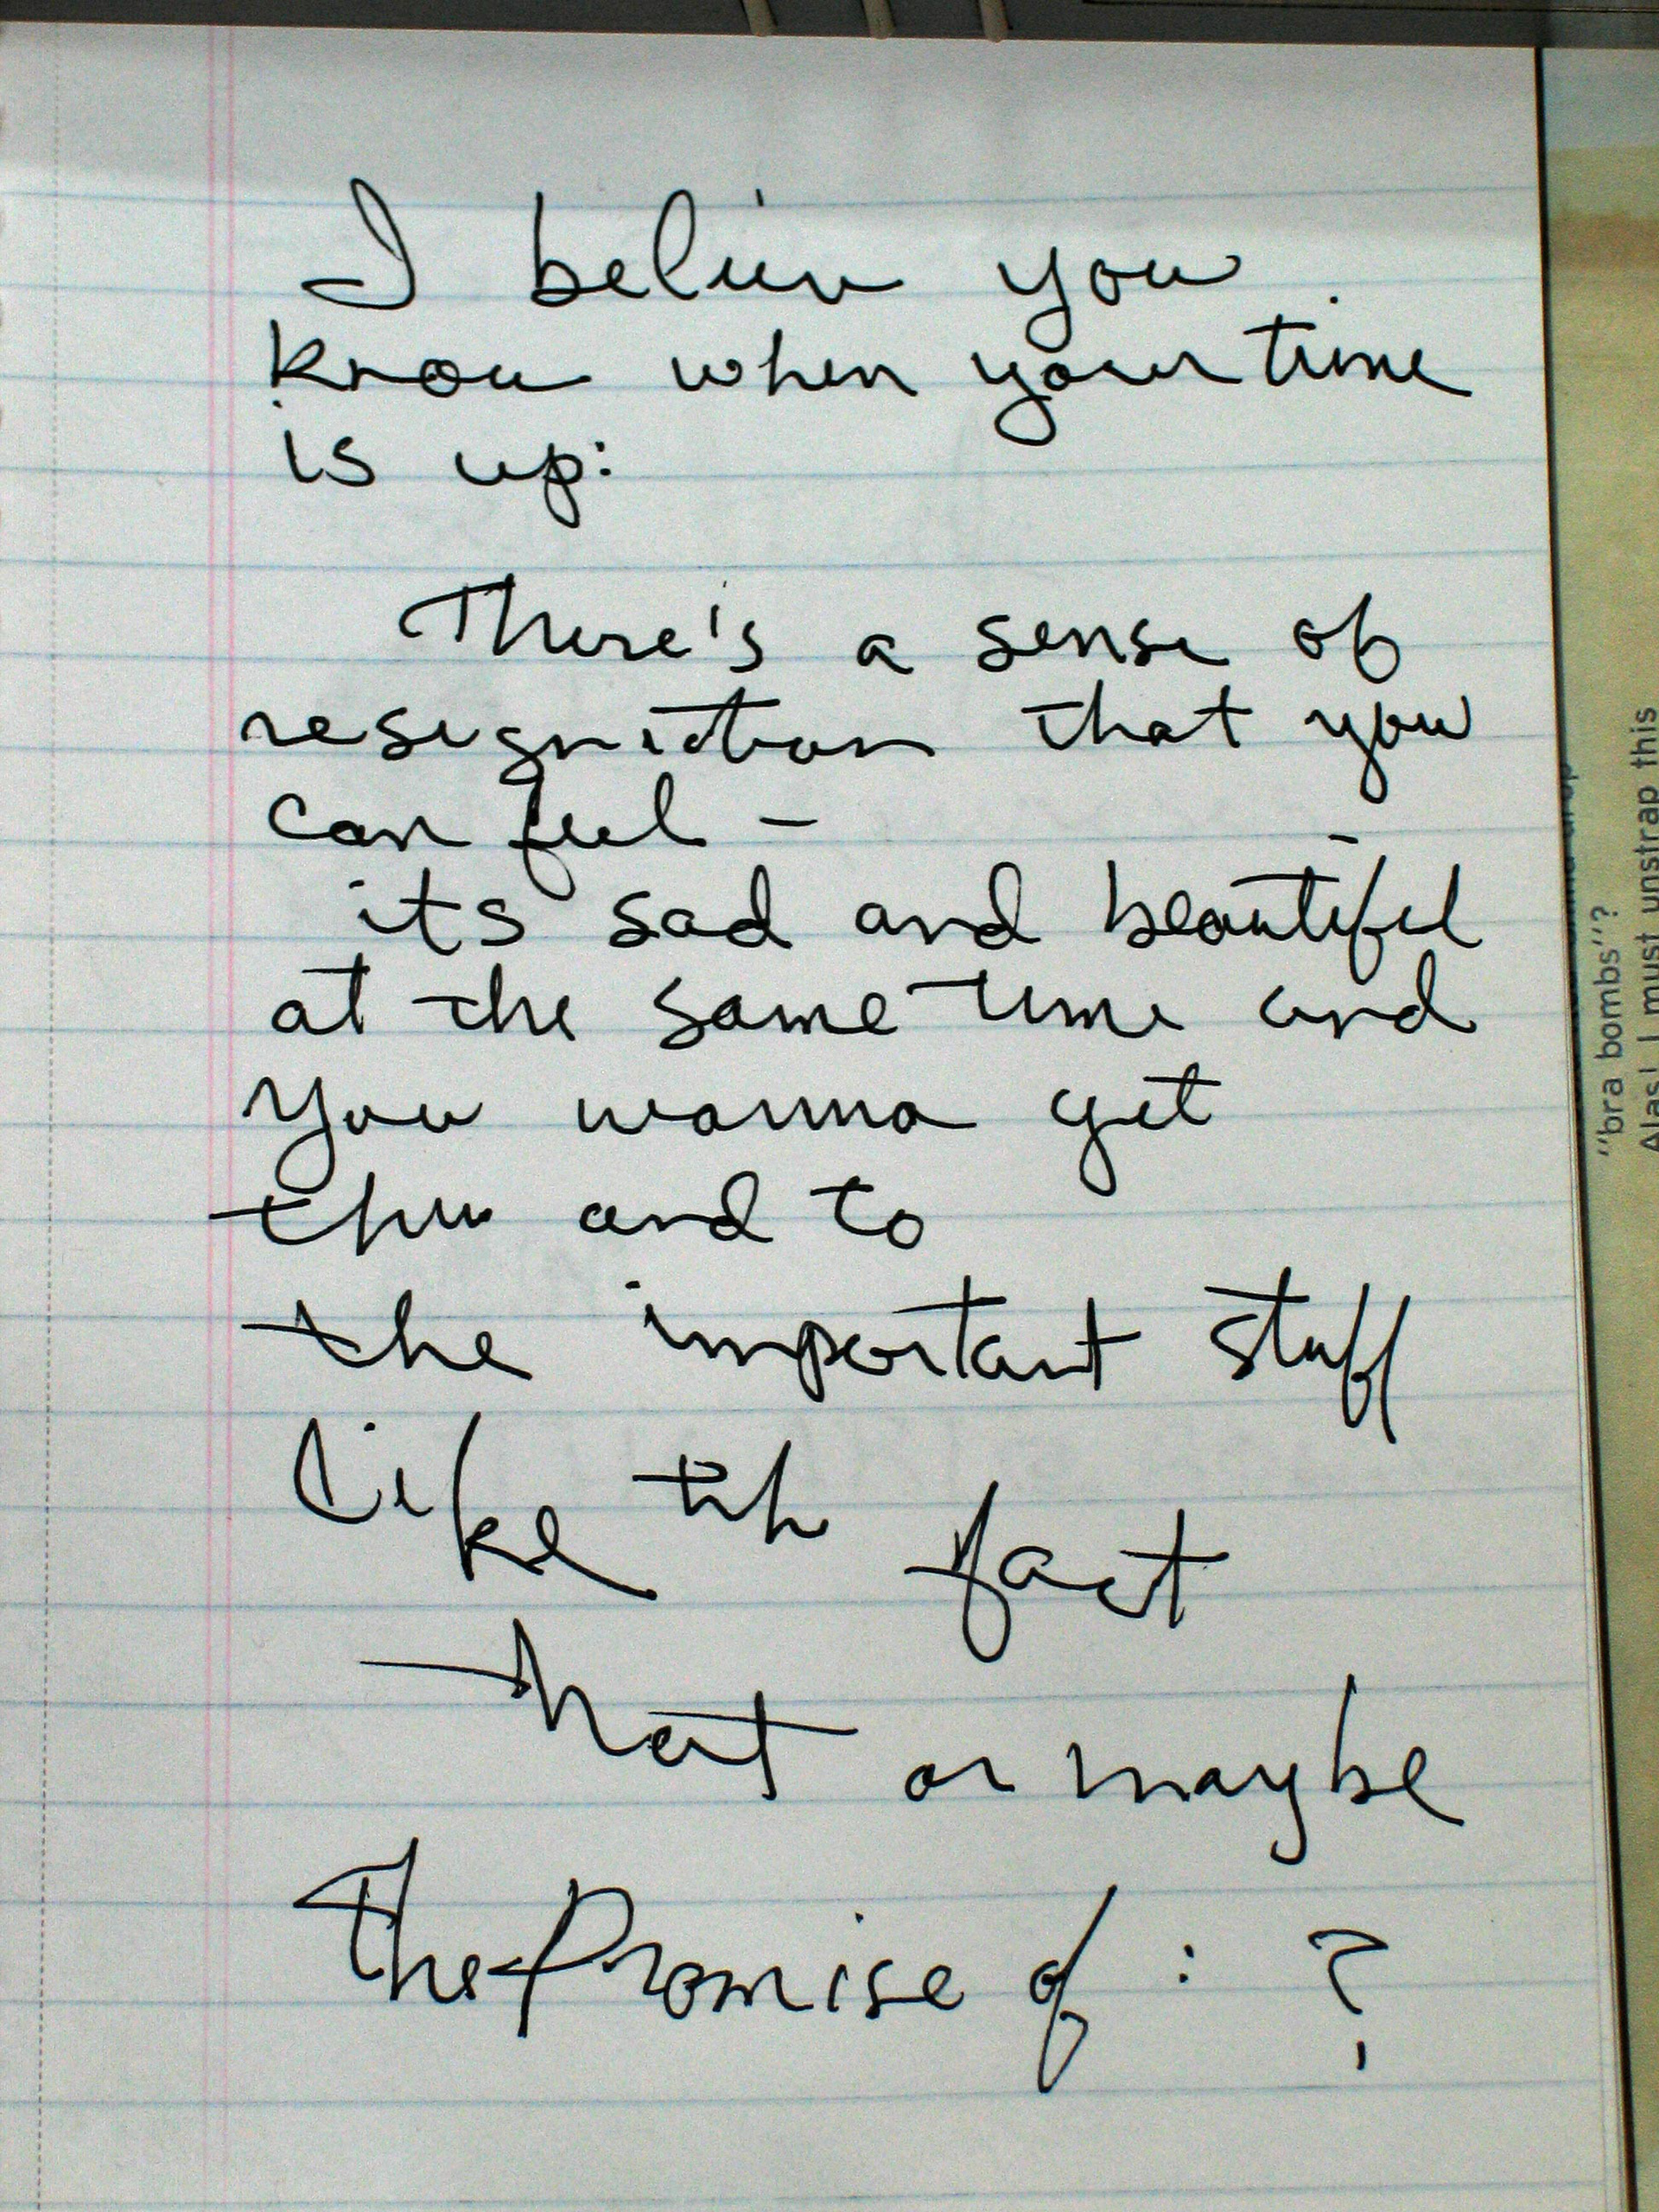 I believe you
know when your time
is up:
There's a sense of
resignation that you
can feel –
its sad and beautiful
at the same time and
you wanna get
thru and to
the important stuff
like the fact
that or maybe
the Promise of : ?
"bra bombs"?
Alas! I must unstrap this